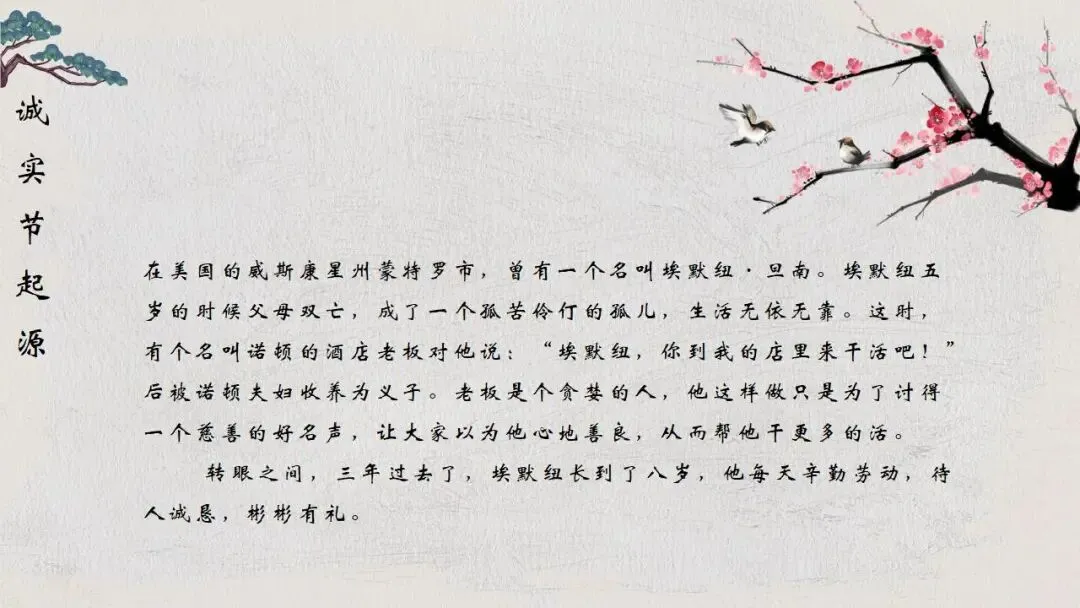 诚实节起源
在美国的威斯康星州蒙特罗市，曾有一个名叫埃默纽·旦南。埃默纽五
岁的时候父母双亡，成了一个孤苦伶仃的孤儿，生活无依无靠。这时，
有个名叫诺顿的酒店老板对他说：“埃默纽，你到我的店里来干活吧！”
后被诺顿夫妇收养为义子。老板是个贪婪的人，他这样做只是为了讨得
一个慈善的好名声，让大家以为他心地善良，从而帮他干更多的活。
转眼之间，三年过去了，埃默纽长到了八岁，他每天辛勤劳动，待
人诚恳，彬彬有礼。